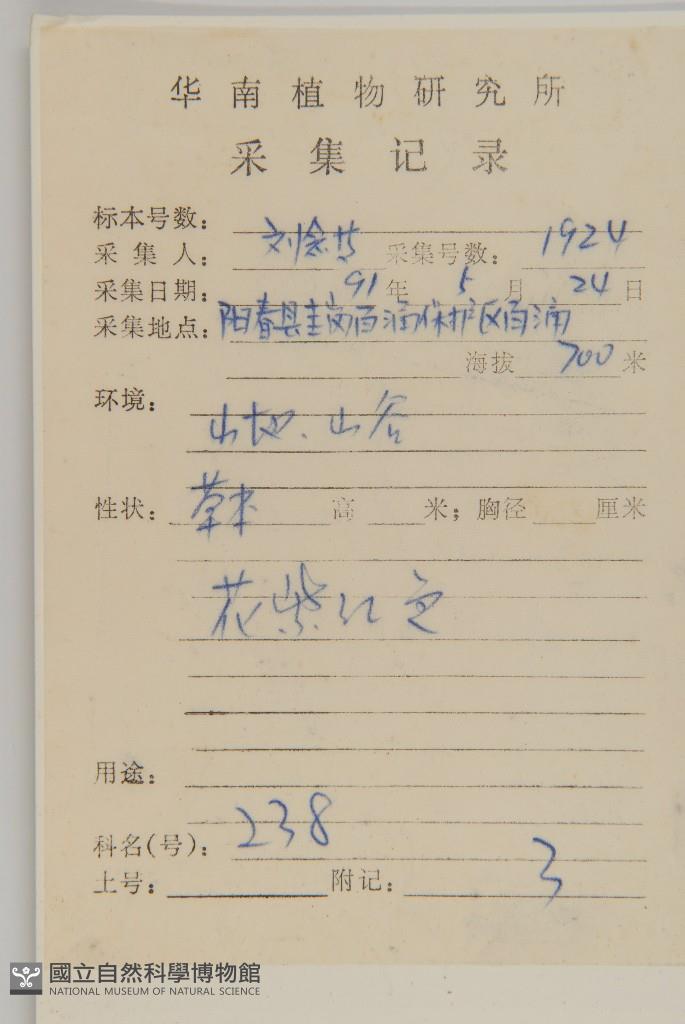 华南植物研究所
采集记录
标本号数：
采集人： 刘念 采集号数： 1924
采集日期： 91 年 5 月 24 日
采集地点： 阳春县圭岗百涌保护区百涌
海拔 700 米
环境：
山地、山谷
性状： 草本 高 米；胸径 厘米
花紫红色
用途：
科名(号)： 238
上号： 附记： 3
國立自然科學博物館
NATIONAL MUSEUM OF NATURAL SCIENCE